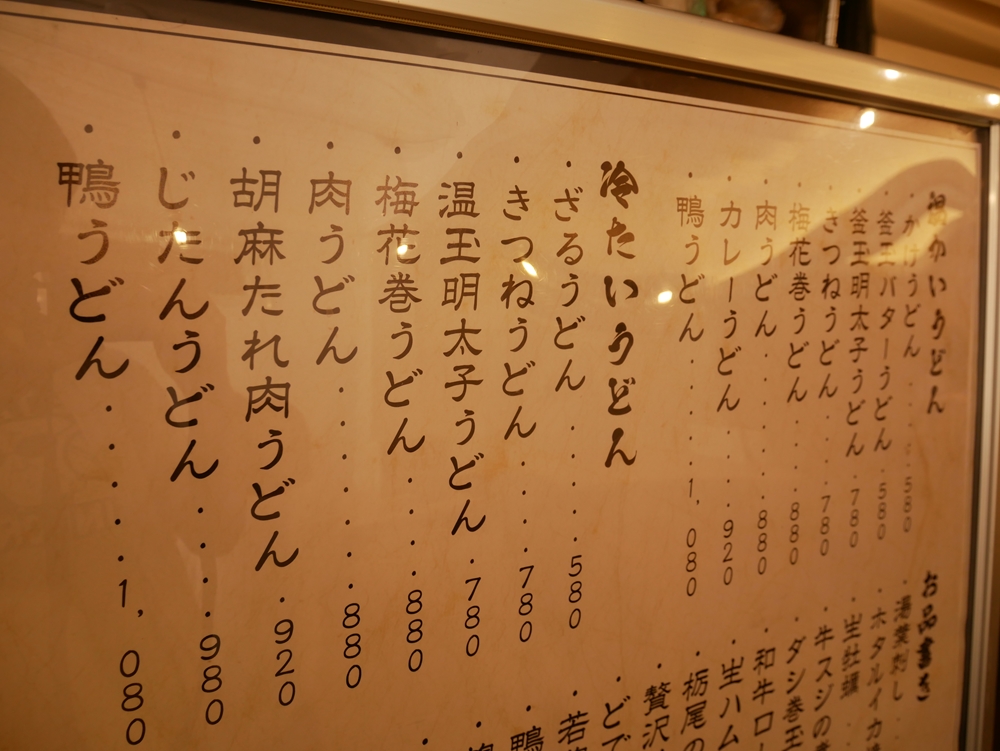 温かいうどん
・かけうどん・・・・・580
・釜玉バターうどん・580
・釜玉明太子うどん・780
・きつねうどん・・・・780
・梅花巻うどん・・・・880
・肉うどん・・・・・・880
・カレーうどん・・・・920
・鴨うどん・・・・・1,080
冷たいうどん
・ざるうどん・・・・・580
・きつねうどん・・・・780
・温玉明太子うどん・780
・梅花巻うどん・・・・880
・肉うどん・・・・・・880
・胡麻たれ肉うどん・920
・じたんうどん・・・980
・鴨うどん・・・・・1,080
お品書き
・湯葉刺し・・
・ホタルイカ
・生牡蠣・・
・牛スジの
・ダシ巻玉
・和牛ロ
・生ハム
・栃尾の
・贅沢
・ど
・若
・鴨